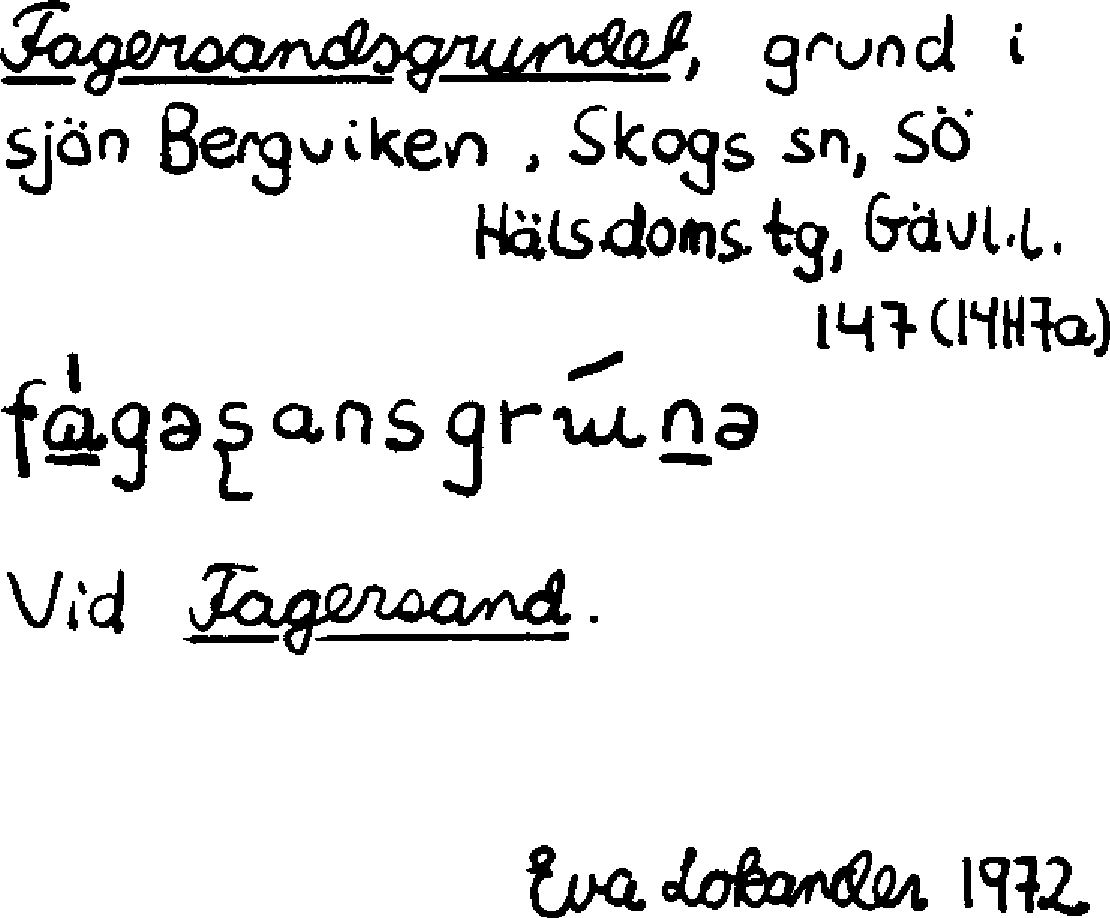 Fagersandsgrundet, grund i
sjön Bergviken, Skogs sn, Sö
Hälsdoms tg, Gävl.l.
147 (14H7a)
Vid Fagersand.
Eva Lokander 1972